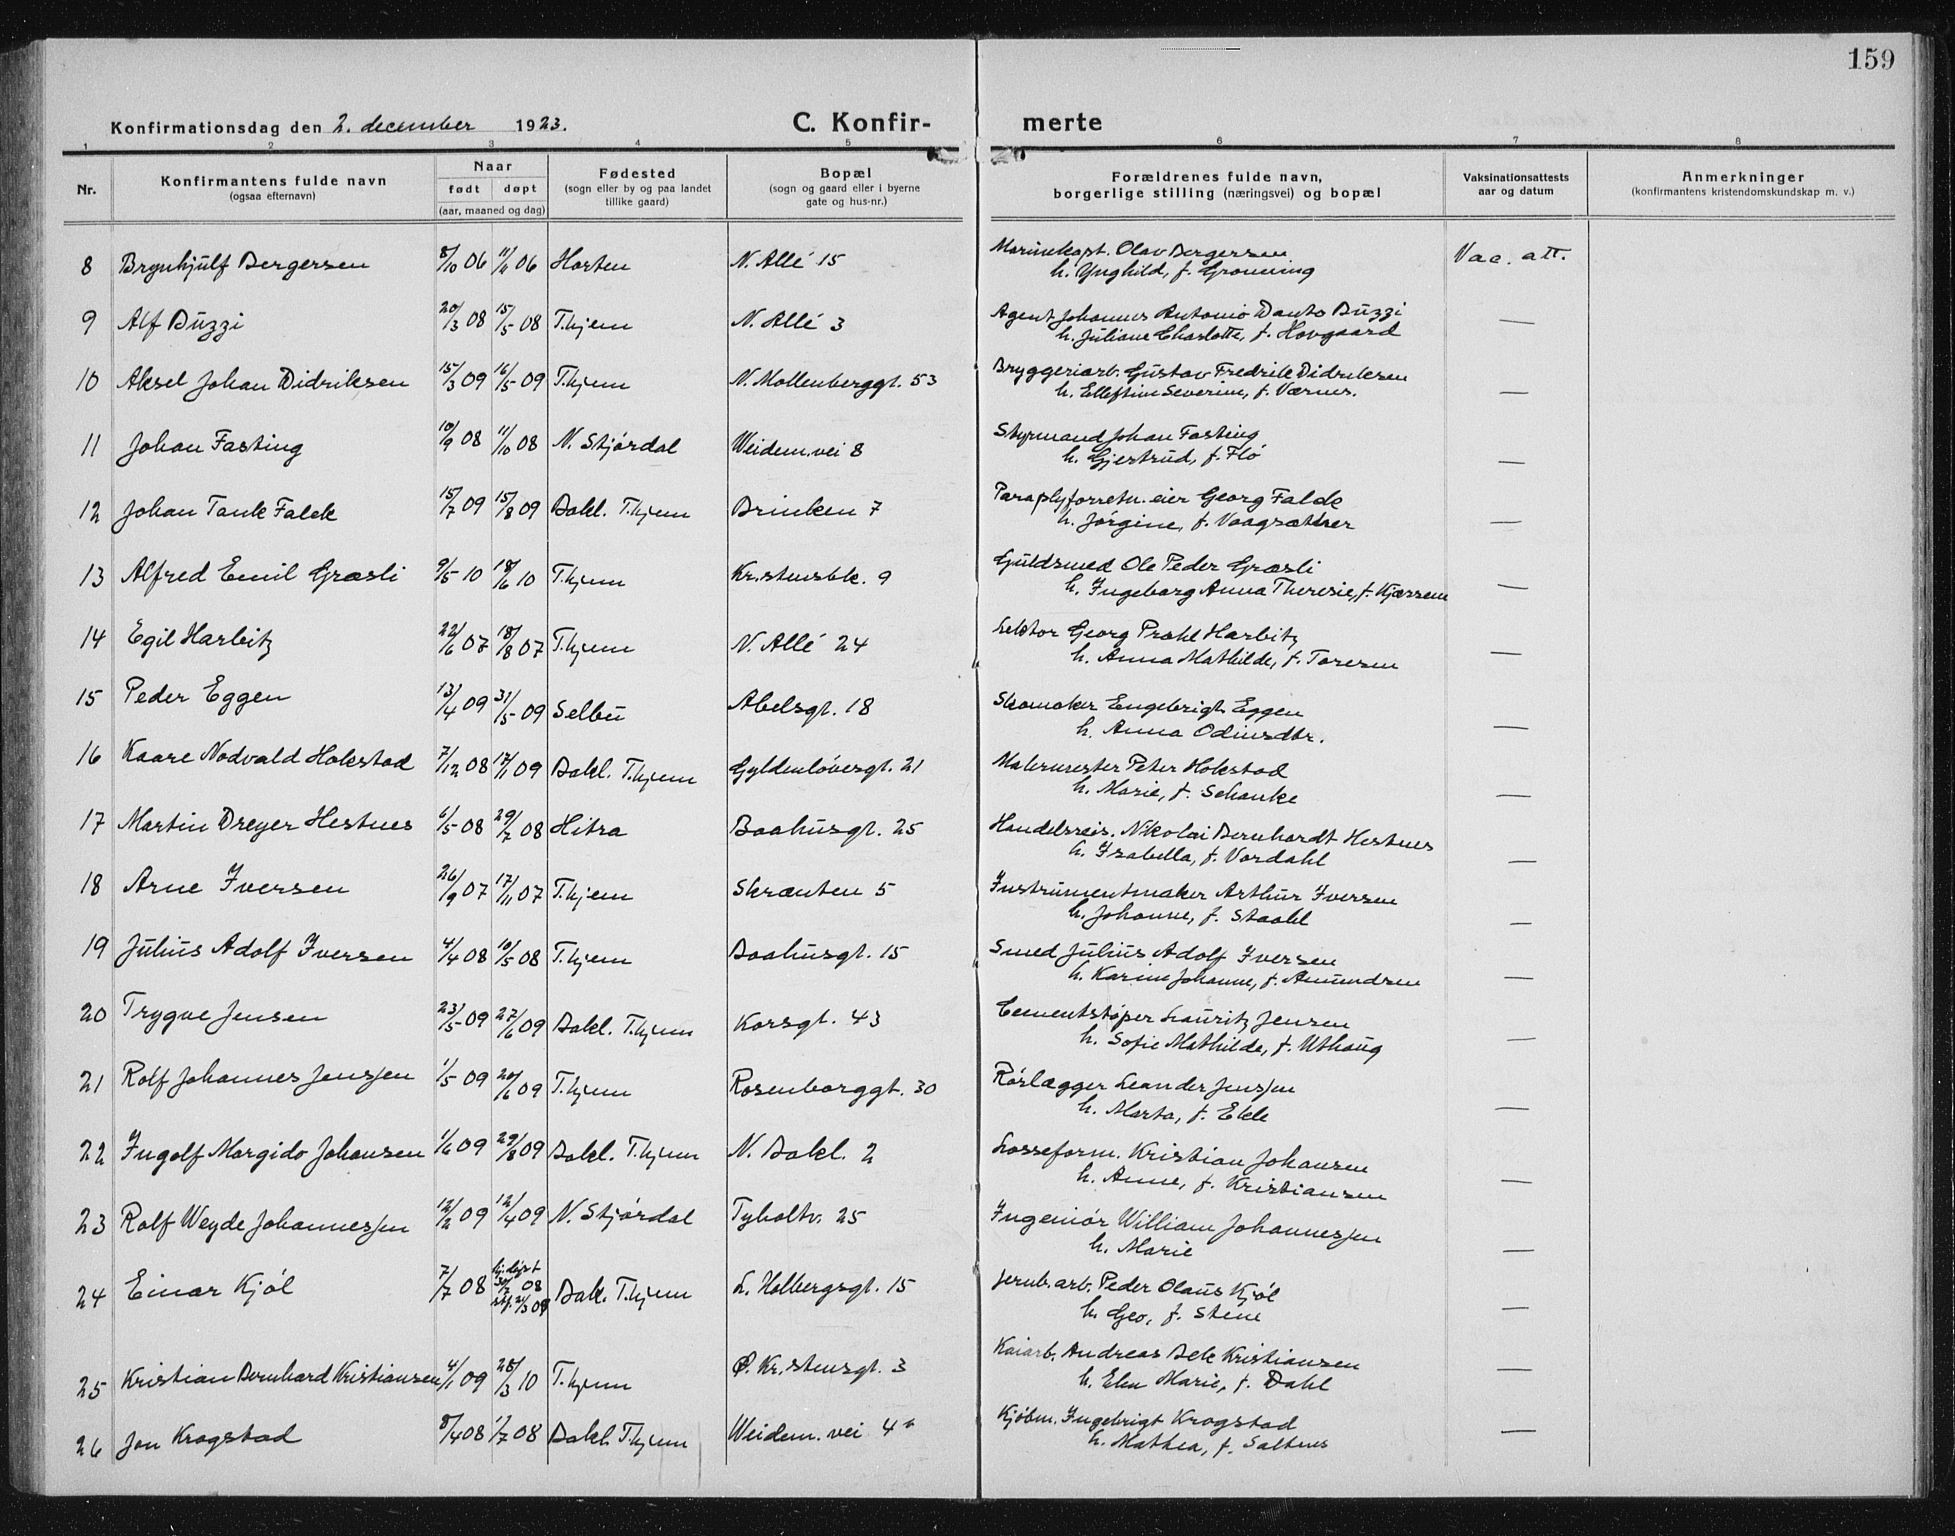 159
Konfirmationsdag den 2. december 1923.
C. Konfirmerte
1 2 3 4 5 6 7 8
Nr. Konfirmantens fulde navn (ogsaa efternavn) Naar født døpt (aar, maaned og dag) Fødested (sogn eller by og paa landet tillike gaard) Bopæl (sogn og gaard eller i byerne gate og hus-nr.) Forældrenes fulde navn, borgerlige stilling (næringsvei) og bopæl Vaksinationsattests aar og datum Anmerkninger (konfirmantens kristendomskundskap m. v.)
8 Brynhjulf Bergersen 8/10 06 11/11 06 Horten N. Allé 15 Marinekapt. Olav Bergersen Vac. att.
h. Ynghild, f. Grønning
9 Alf Buzzi 20/3 08 15/5 08 T.hjem N. Allé 3 Agent Johannes Antonio Danto Buzzi —
h. Juliane Charlotte, f. Hovgaard
10 Aksel Johan Didriksen 15/3 09 16/5 09 T.hjem N. Møllenberggt. 53 Bryggeriarb. Gustav Fredrik Didriksen
h. Ellefine Severine, f.Værnes. —
11 Johan Fasting 10/9 08 11/10 08 N. Stjørdal Weidem.vei 8 Styrmand Johan Fasting
h. Gjertrud, f. Flø —
12 Johan Tank Falck 15/7 09 15/8 09 Bakl. T.hjem Brinken 7 Paraplyforretn. eier Georg Falck
h. Jørgine, f. Vaagsæther —
13 Alfred Emil Græsli 9/5 10 18/6 10 T.hjem Kr.stensbk. 9 Guldsmed Ole Peder Græsli
h. Ingeborg Anna Theresie, f. Kjærrem —
14 Egil Harbitz 22/6 07 18/8 07 T.hjem N. Allé 24 Lektor Georg Prahl Harbitz
h. Anna Mathilde, f. Toresen —
15 Peder Eggen 13/4 09 31/5 09 Selbu Abelsgt. 18 Skomaker Engebrigt Eggen
h. Anna Odinsdtr. —
16 Kaare Nodvald Hokstad 7/12 08 17/1 09 Bakl. T.hjem Gyldenløvesgt. 21 Malermester Peter Hokstad
h. Marie, f. Schanke —
17 Martin Dreyer Hestnes 6/5 08 29/7 08 Hitra Baahusgt. 25 Handelsreis. Nikolai Bernhardt Hestnes
h. Isabella, f. Vordahl —
18 Arne Iversen 26/9 07 17/11 07 T.hjem Skrænten 5 Instrumentmaker Arthur Iversen
h. Johanne, f. Staahl —
19 Julius Adolf Iversen 4/4 08 10/5 08 T.hjem Baahusgt. 15 Smed Julius Adolf Iversen
h. Karine Johanne, f. Amundsen —
20 Trygve Jensen 23/5 09 27/6 09 Bakl. T.hjem Korsgt. 43 Cementstøper Lauritz Jensen
h. Sofie Mathilde, f. Uthaug —
21 Rolf Johannes Jenssen 1/5 09 20/6 09 T.hjem Rosenborggt. 30 Rørlægger Leander Jenssen
h. Marta, f. Ekle —
22 Ingolf Margido Johansen 1/6 09 29/8 09 Bakl. T.hjem N. Bakl. 2 Losseform. Kristian Johansen
h. Anne, f. Kristiansen —
23 Rolf Weyde Johannessen 12/2 09 12/4 09 N. Stjørdal Tyholtv. 25 Ingeniør William Johannessen
h. Marie —
24 Einar Kjøl 7/7 08 hj.døpt 30/7 08 stf. 21/3 09 Bakl. T.hjem L. Holbergsgt. 15 Jernb.arb. Peder Olaus Kjøl
h. Geo, f. Stene —
25 Kristian Bernhard Kristiansen 4/1 09 28/3 10 T.hjem Ø. Kr.stensgt. 3 Kaiarb. Andreas Bek Kristiansen
h. Elen Marie, f. Dahl —
26 Jon Krogstad 8/4 08 1/7 08 Bakl. T.hjem Weidem. vei 4a Kjøbm. Ingebrigt Krogstad
h. Mathea, f. Saltnes —